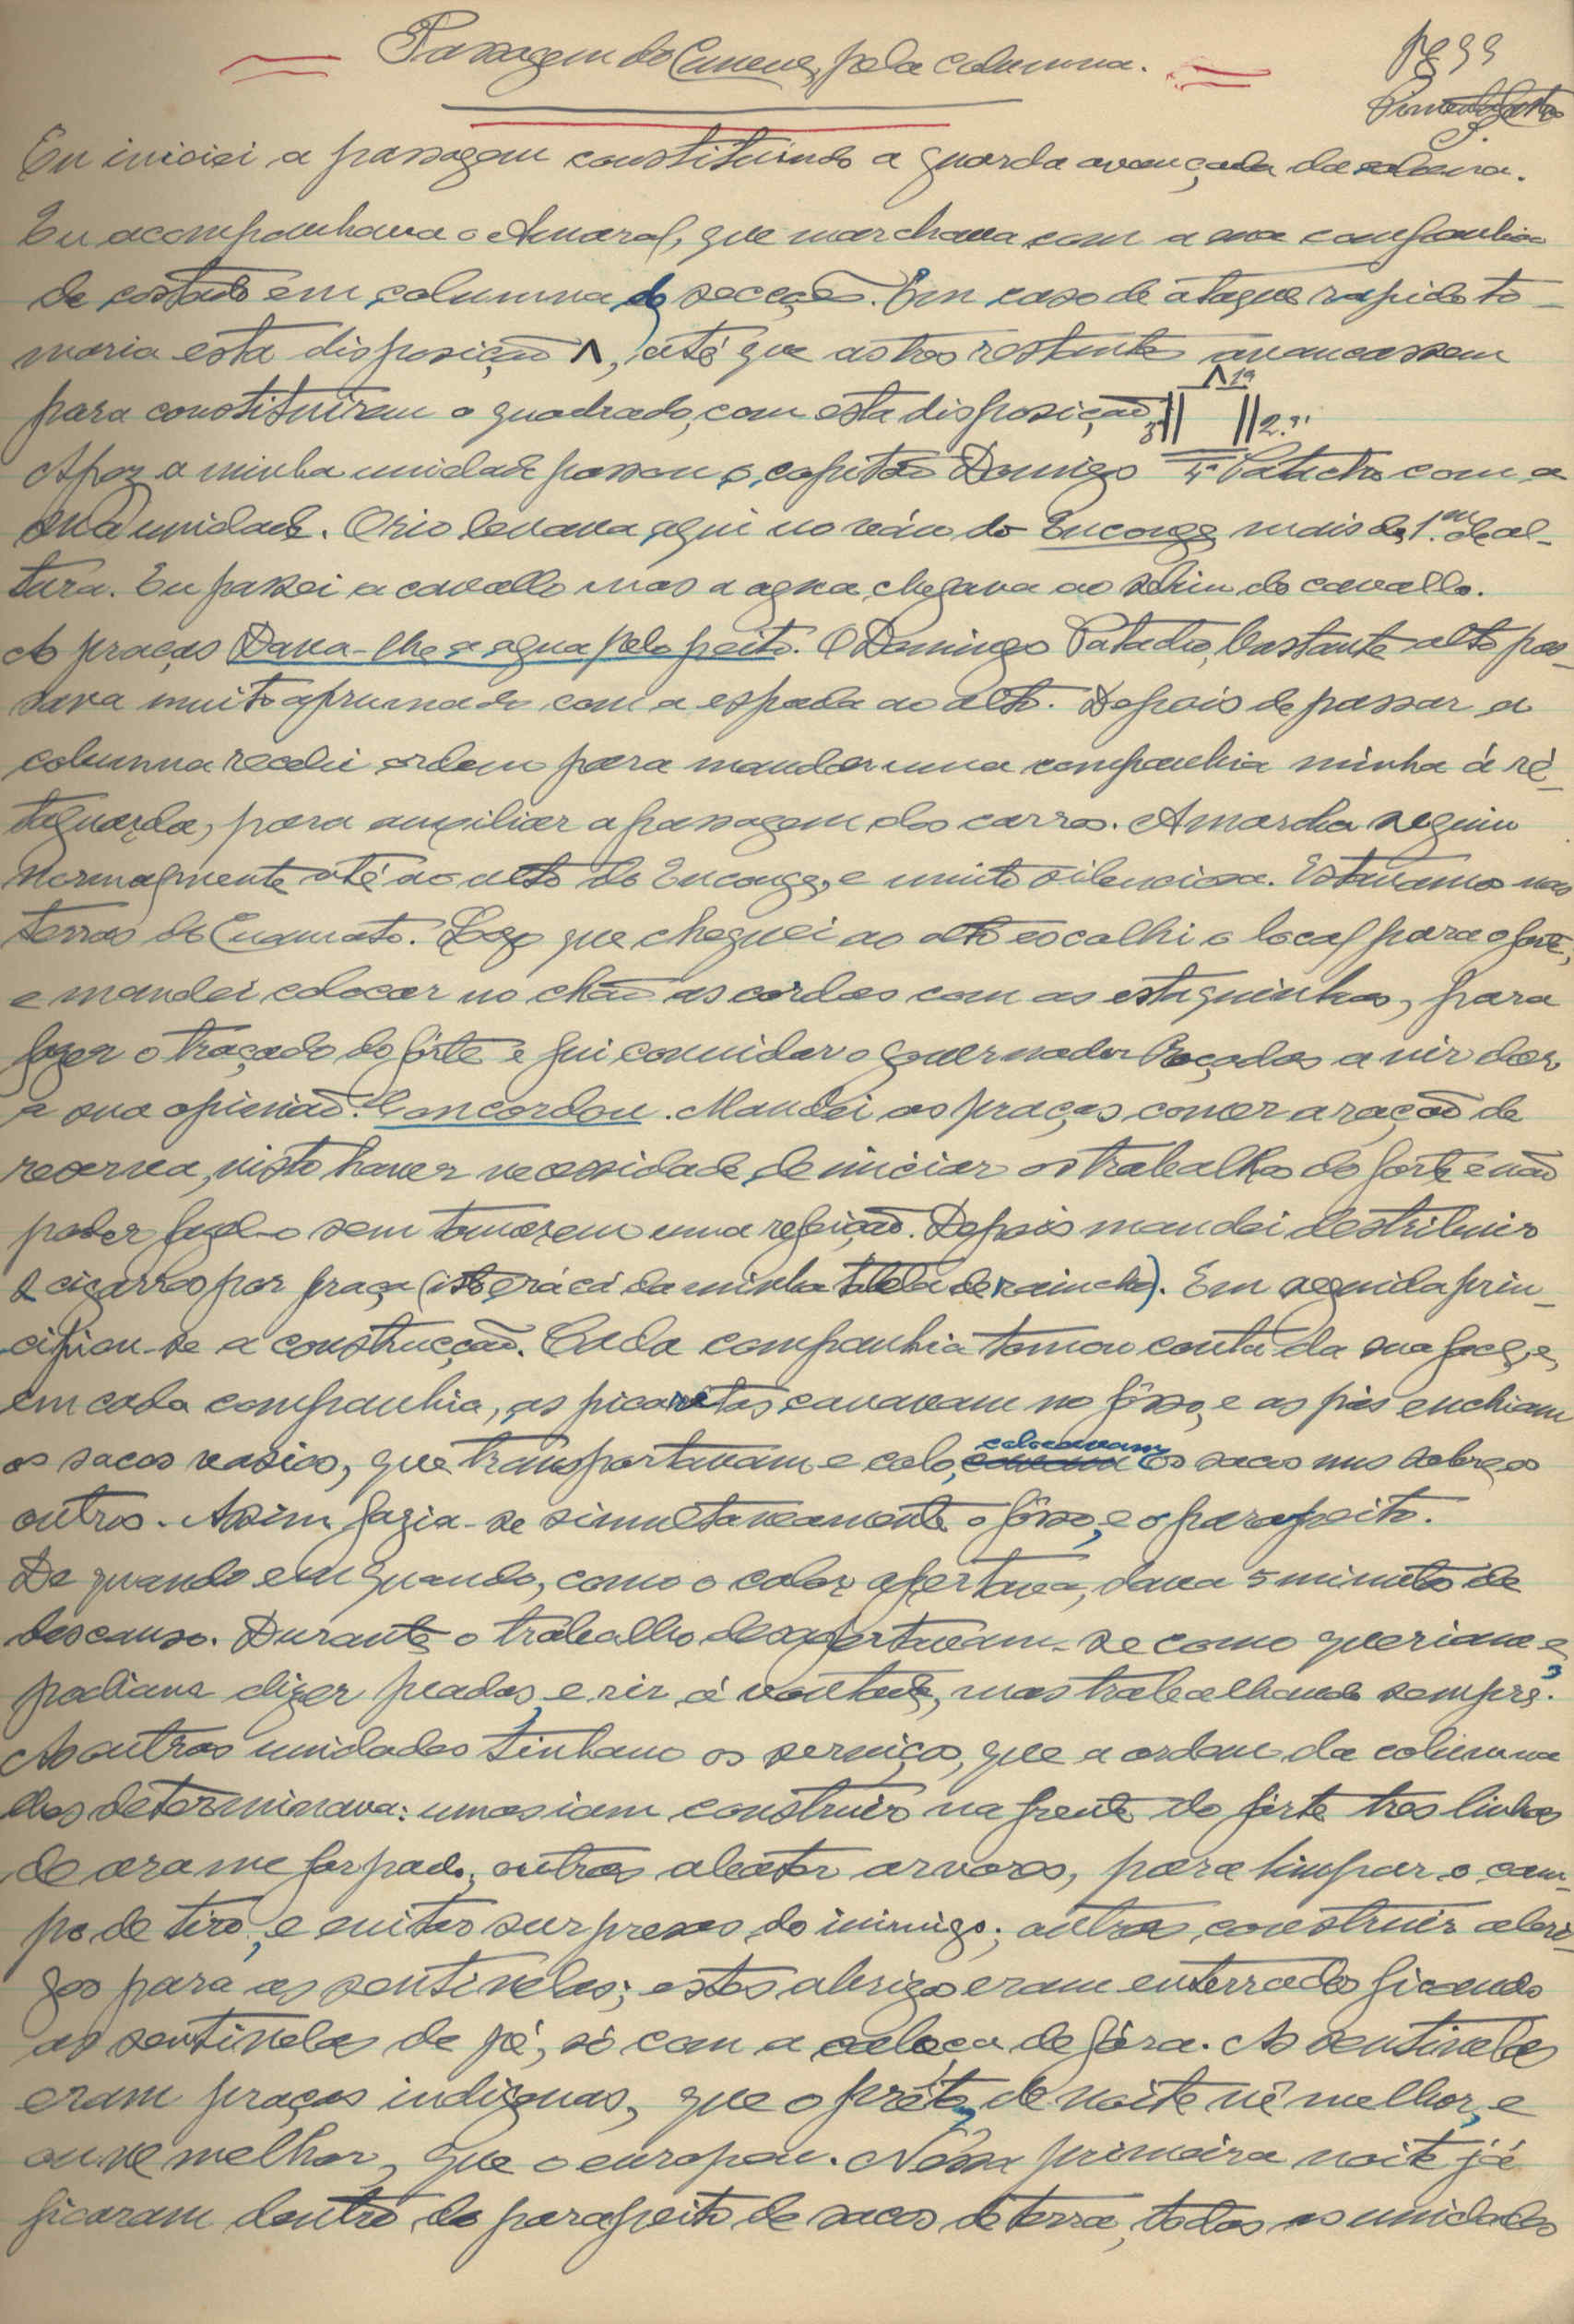 Passagem do Cunene, pela columna.
pg 99
Pimenta
Eu iniciei a passagem constituindo a guarda avançada da
Eu acompanhava o Amaral, que marchava com a sua companhia
de costado em columna de secção. Em caso de ataque rapido to-
maria esta disposição Λ, até que as tres restantes avancassem
para constituirem o quadrado, com esta disposição
Λ 1ª
3ª || || 2.ª
4ª
Apoz a minha unidade passou o capitão Domigo Patacho com a
sua unidade. O rio levava aqui no váu do Encongo mais de 1.m de al-
tura. Eu passei a cavallo mas a agua chegava ao selim do cavallo.
As praças Dava-lhe a agua pelo peito. O Domingo Patacho, bastante alto pas-
sava muito aprumado com a espada ao alto. Depois de passar a
columna recebi ordem para mandar uma companhia minha á re-
taguarda, para auxiliar a passagem dos carros. A marcha seguiu
normalmente até ao alto do Encongo, e muito silenciosa. Estavamos nas
terras do Cuamato. Logo que cheguei ao alto escolhi o local para o forte,
e mandei colocar no chão as cordas com as estaquinhas, para
fazer o traçado do fórte e fui convidar o governador Roçadas a vir dar
a sua opinião. Concordou. Mandei as praças comer a ração de
reserva, visto haver necessidade de iniciar os trabalhos do forte e não
poder fazel-o sem tomarem uma refeição. Depois mandei destribuir
2 cigarros por praça (isto erá cá da minha tabela de rancho). Em seguida prin-
cipiou-se a construcção. Cada companhia tomou conta da sua face, e,
em cada companhia, as picaretas cavavam no fôsso, e as pás enchiam
os sacos vasios, que transportavam e colo, colocavam os sacos uns sobre os
outros. Assim fazia-se simultaneamente o fôsso, e o parapeito.
De quando em quando, como o calor apertava, dava 5 minutos de
descanso. Durante o trabalho desapertavam-se como queriam e
podiam dizer piadas, e rir á vontade, mas trabalhando sempre.
As outras unidades tinham os serviços, que a ordem da columna
lhes determinava: umas iam construir na frente do fórte tres linhas
de arame farpado; outras abater arvores, para limpar o cam-
po de tiro, e evitar surprezas do inimigo; outras construir abri-
gos para as sentinelas; estes abrigos eram enterrados ficando
as sentinelas de pé, só com a cabeça de fóra. As sentinelas
eram praças indigenas, que o prêto, de noite vê melhor, e
ouve melhor, que o europeu. Nessa primeira noite já
ficaram dentro do parapeito de sacos de terra, todas as unidades